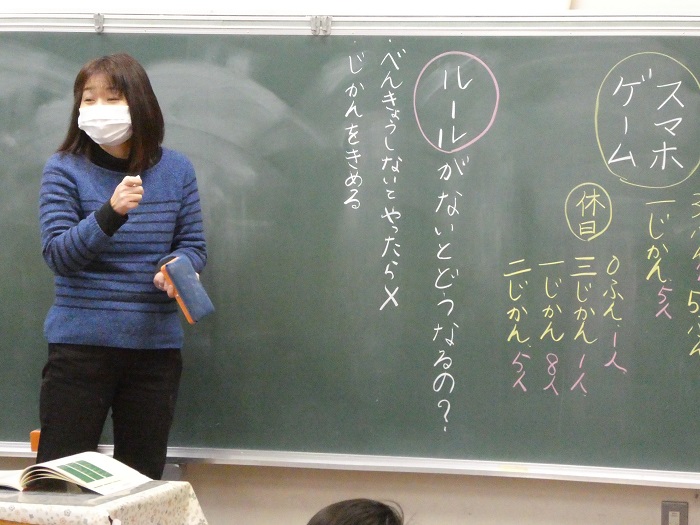 スマホ
ゲーム
一じかん 5人
休日
0ふん、1人
三じかん 1人
一じかん 8人
二じかん 5人
ルールがないとどうなるの？
・べんきょうしないとやったら×
・じかんをきめる